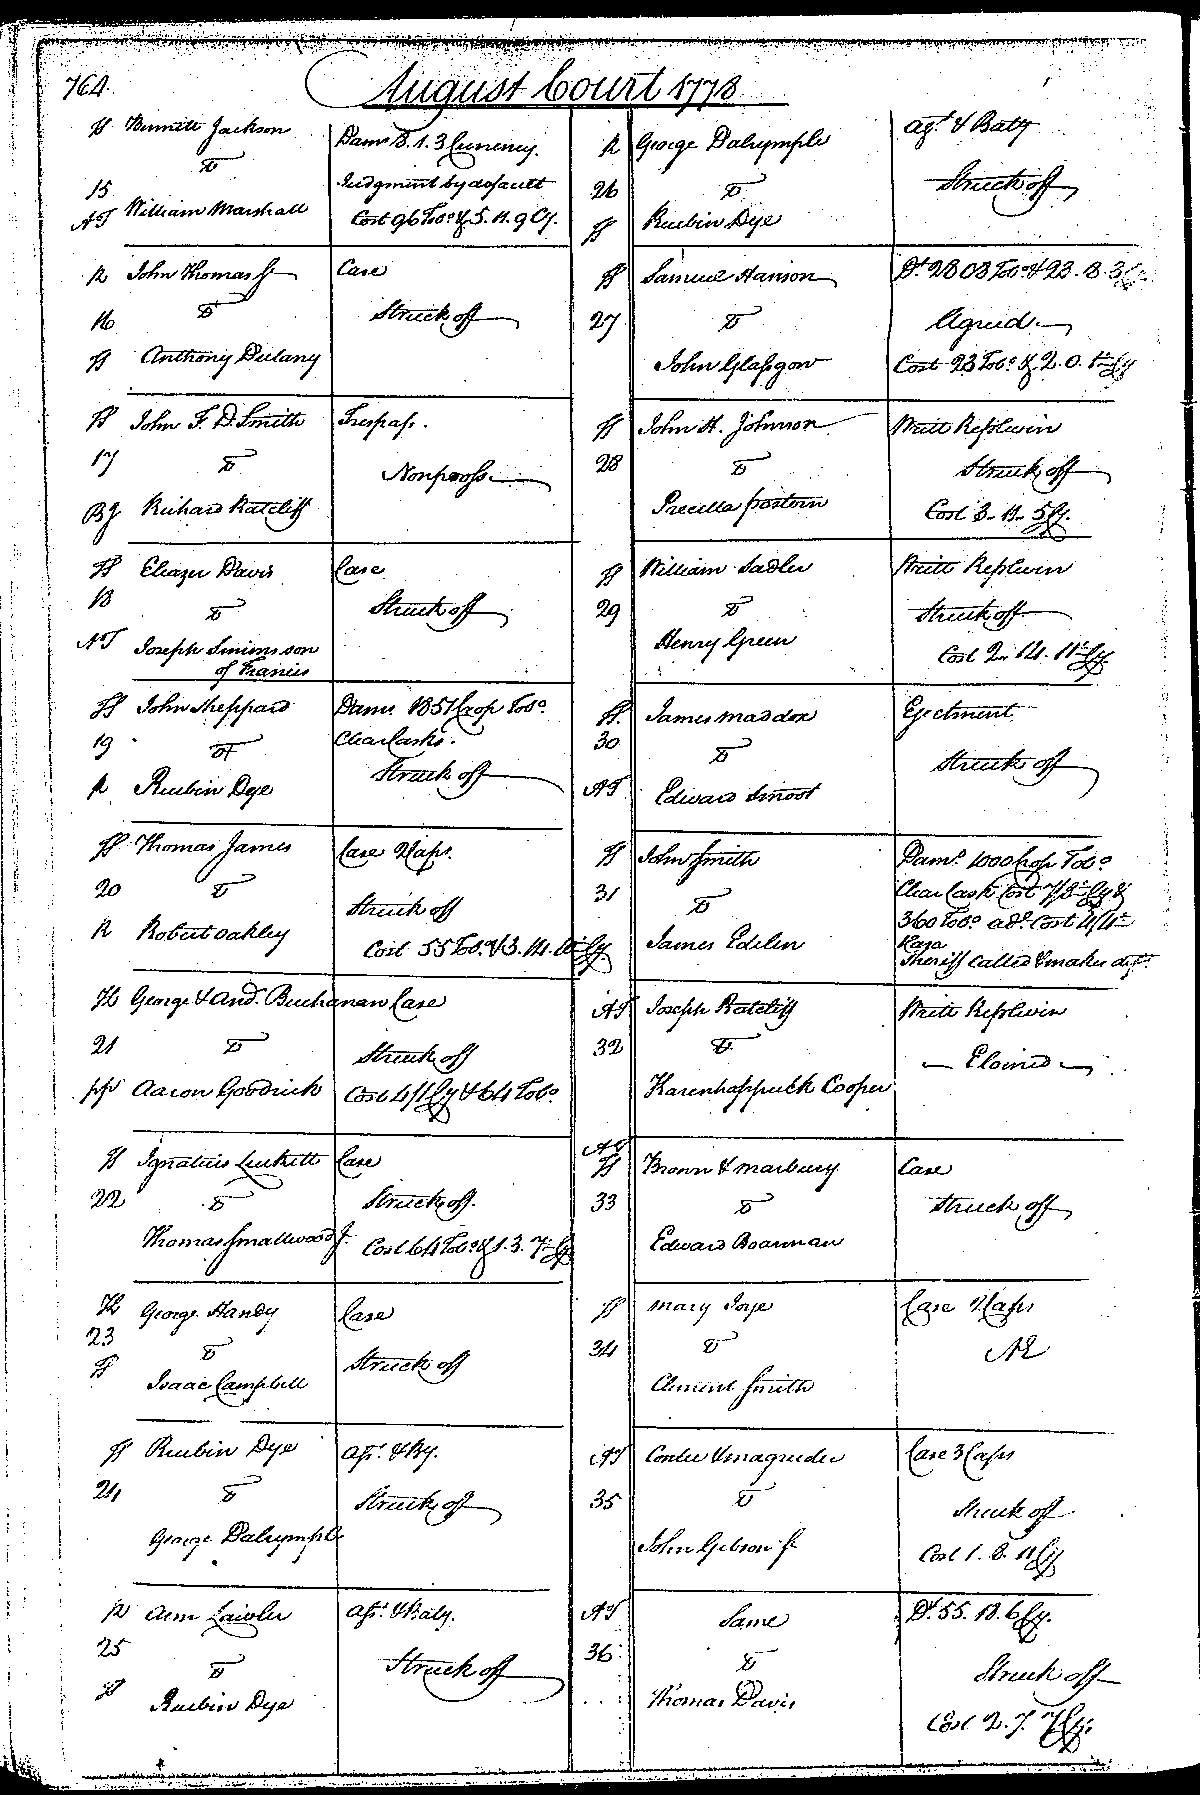 764.
August Court 1778
Bennett Jackson
Dam.s 8.1.3 Currency.
vs
15
Judgment by default
William Marshall
Cost 96 Tob.o & 5.11.9 Cy.
John Thomas Jr
Case
16
vs
Struck off
Anthony Dulany
John F. D. Smith
Trespass.
17
vs
Nonpross
Richard Ratcliff
Eleazer Davis
Case
18
vs
Struck off
Joseph Simms son
of Francis
John Sheppard
Dam.s 1851 Crop Tob.o
19
vs
Clear Casks.
Struck off
R Reubin Dye
Thomas James
Case 2 Caps.
20
vs
Struck off
R Robert Oakley
Cost 55 Tob.o & 3.14.
George & And.w Buchanan Case
21
vs
Struck off
Aaron Goodrick
Cost 4/1 Cy & 64 Tob.o
Ignatius Luckett Case
22
vs
Struck off.
Thomas Smallwood Jr.
Cost 64 Tob.o & 1.3.7 Cy
George Handy
Case
23
vs
Struck off
Isaac Campbell
Reubin Dye
Ass.t & By.
24
vs
Struck off
George Dalrymple
R Ann Lawler
Ass.t & Baty.
25
vs
Struck off
Reubin Dye
R George Dalrymple
Ag.t & Baty
26
vs
Struck off
Reubin Dye
Samuel Hanson
D.t 2803 Tob.o & 23.8.3
27
vs
Agreed.
John Glassgow
Cost 23 Tob.o & 2.0. Cy
John H. Johnson
Writt Replevin
28
vs
Struck off
Precilla
Cost 3.11.5 Cy.
William Sadler
Writt Replevin
29
vs
Struck off
Henry Green
Cost 2.14.11 Cy.
James Maddox
Ejectment
30
vs
Struck off
AT Edward Smoot
John Smith
Dam.s 1000 Crop Tob.o
31
vs
Clear Cask Cost Cy &
360 Tob.o ad.l Cost 4/4
James Edelen
Sheriff called & makes def.t
AT Joseph Ratcliff
Writt Replevin
32
vs
Eloined
Karenhappuck Cooper
Brown & Marbury
Case
33
vs
Struck off
Edward Boarman
Mary Joye
Case 2 Caps
34
vs
NE
Clement Smith
AT Contee & Magruder
Case 3 Caps
35
vs
Struck off
John Gibson Jr
Cost 1.8.11 Cy
AT Same
D.t 55.18.6 Cy.
36
vs
Struck off
Thomas Davis
Cost 2.7.7 Cy.